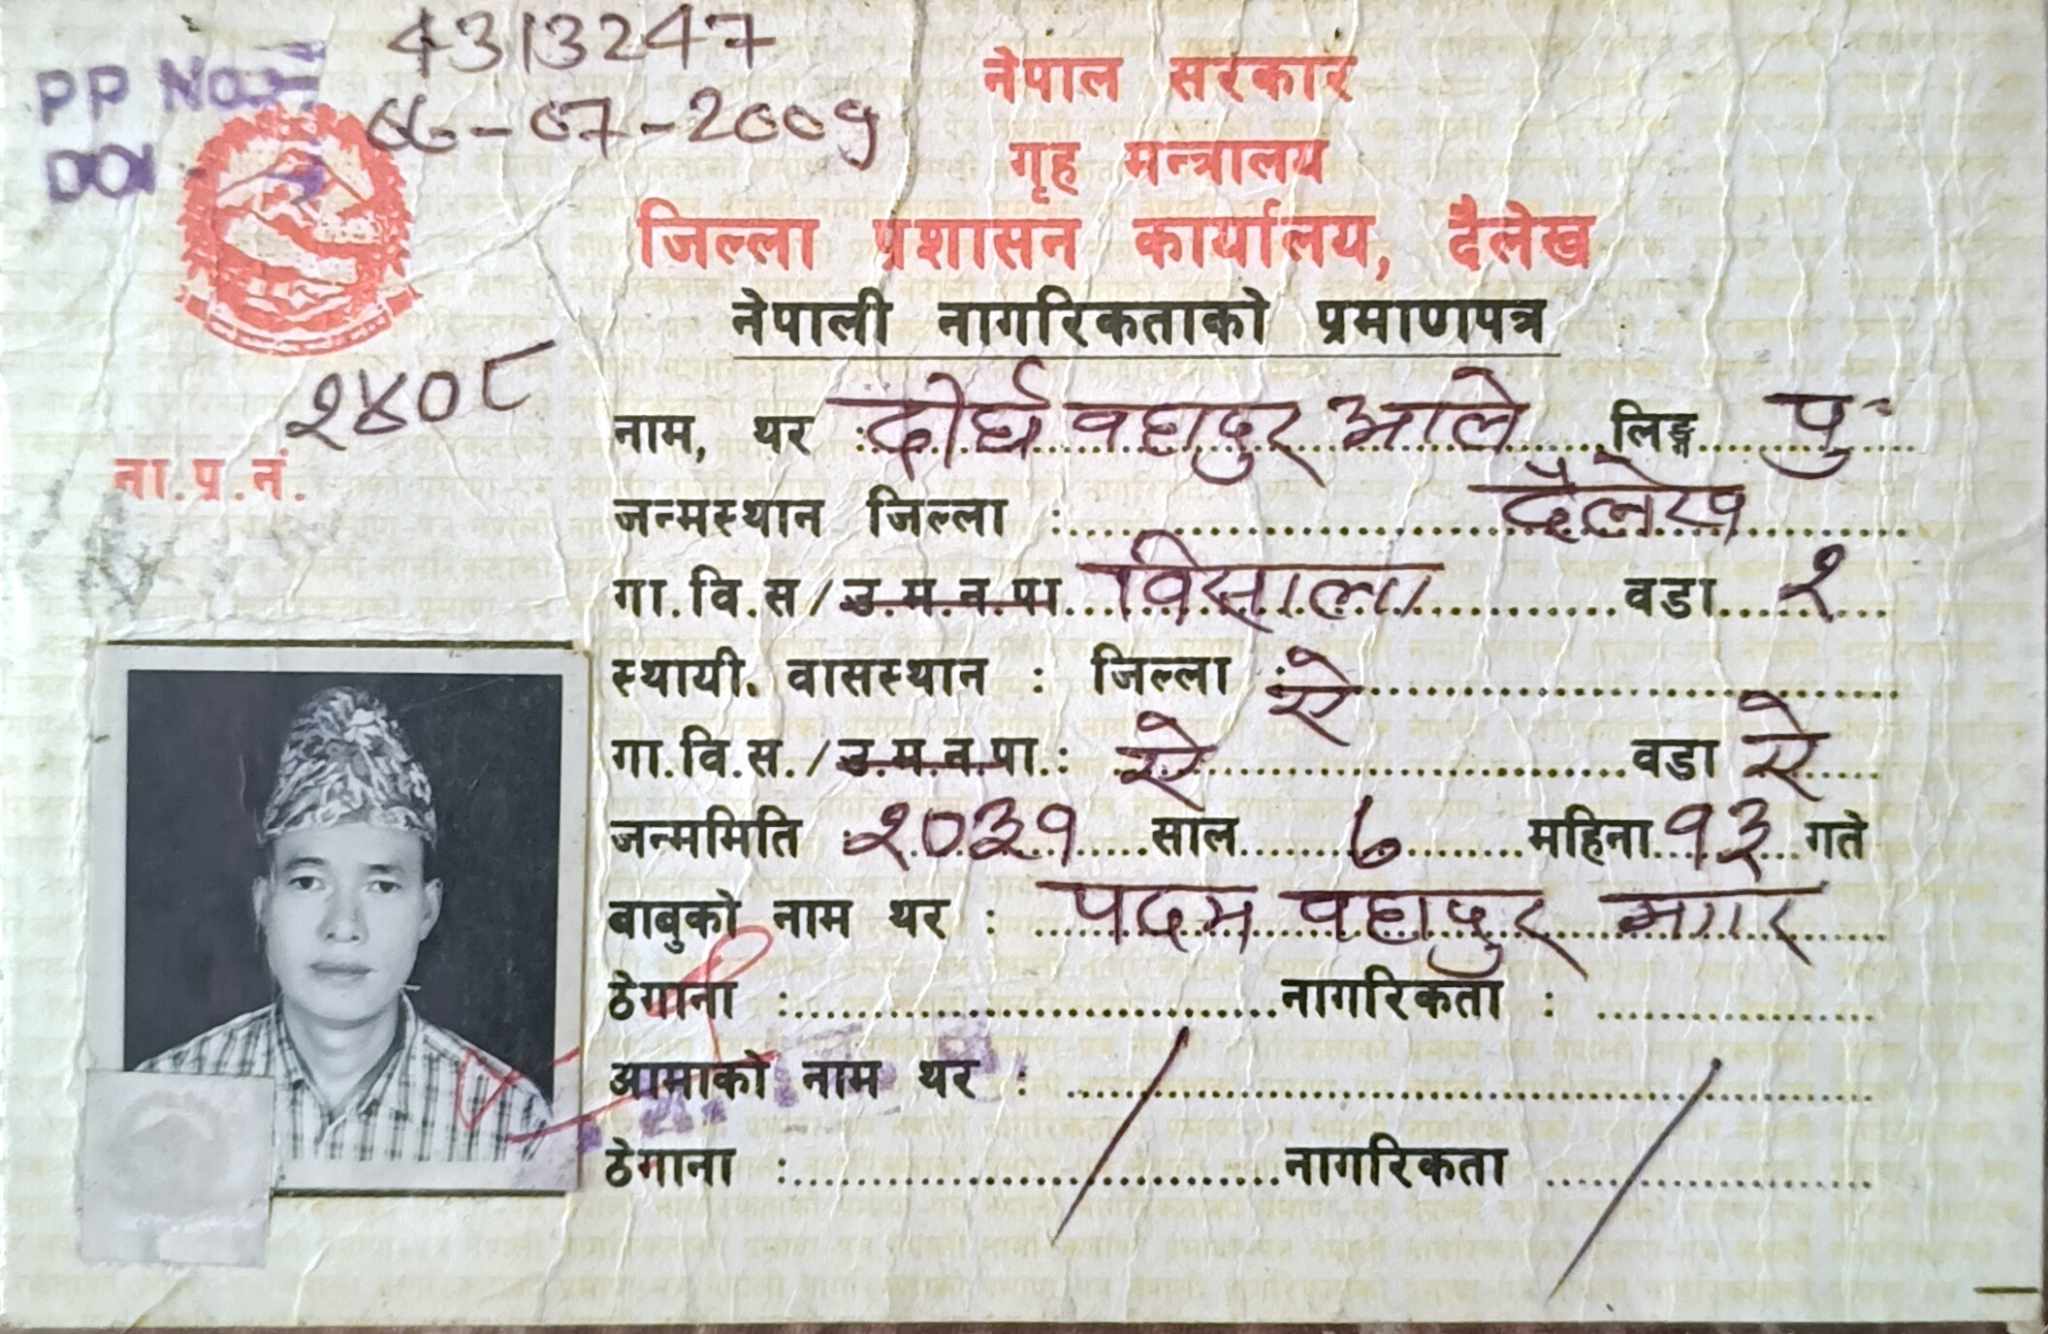 PP No. 4313247
DOI 06-07-2009
नेपाल सरकार
गृह मन्त्रालय
जिल्ला प्रशासन कार्यालय, दैलेख
नेपाली नागरिकताको प्रमाणपत्र
ना.प्र.नं. २४०८
नाम, थर : दीर्घ वहादुर आले लिङ्ग पु
जन्मस्थान जिल्ला : दैलेख
गा.वि.स/उ.म.न.पा विसाला वडा १
स्थायी वासस्थान : जिल्ला : ऐ
गा.वि.स./उ.म.न.पा.: ऐ वडा ऐ
जन्ममिति : २०३१ साल ७ महिना १३ गते
बाबुको नाम थर : पदम वहादुर मगर
ठेगाना : नागरिकता :
आमाको नाम थर :
ठेगाना : नागरिकता